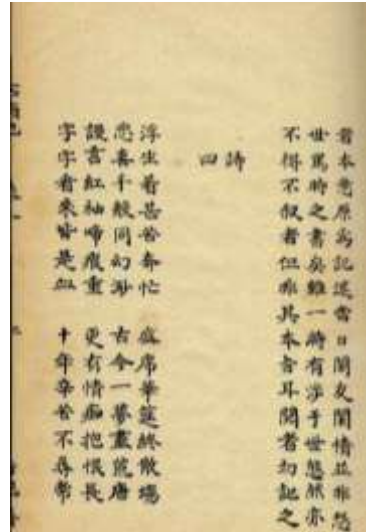 者本意原為記述當日閨友閨情並非怨
世罵時之書矣雖一時有涉于世態然亦
不得不叙者但非其本旨耳閱者切記之
詩
曰
浮生着甚苦奔忙 盛席華筵終散場
悲喜千般同幻渺 古今一夢盡荒唐
謾言紅袖啼痕重 更有情痴抱恨長
字字看來皆是血 十年辛苦不尋常